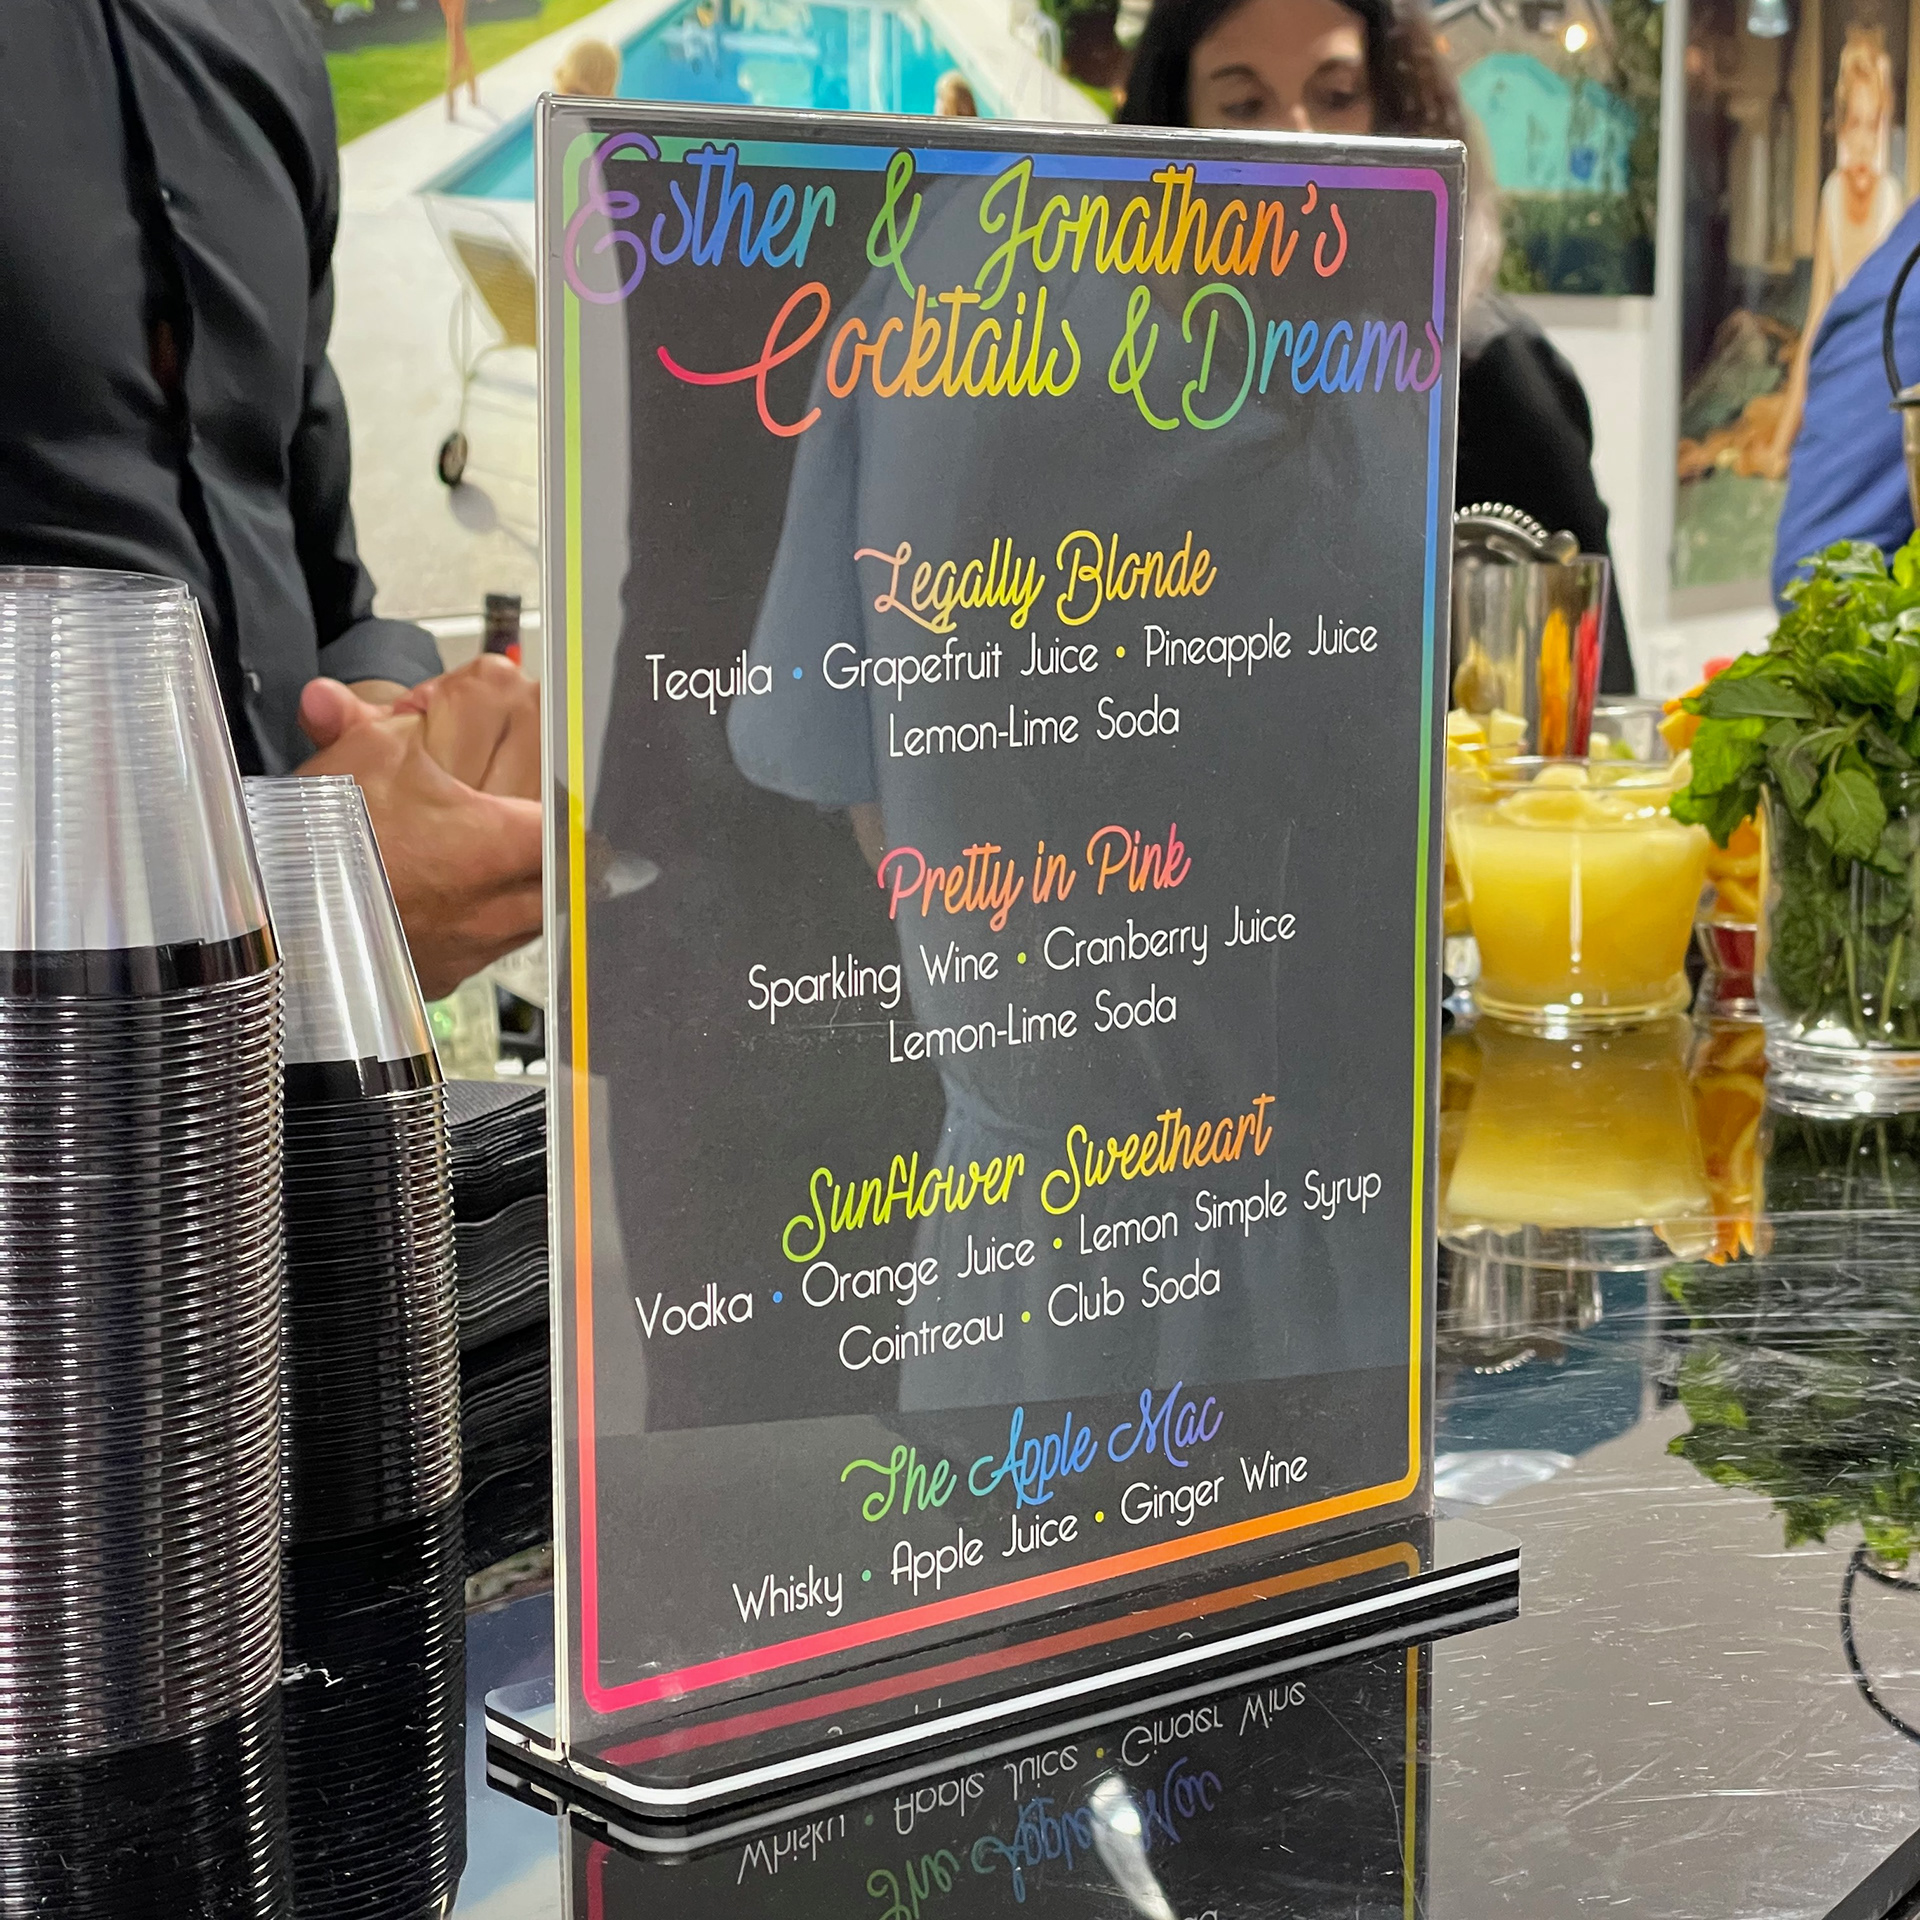 Esther & Jonathan's
Cocktails & Dreams
Legally Blonde
Tequila • Grapefruit Juice • Pineapple Juice
Lemon-Lime Soda
Pretty in Pink
Sparkling Wine • Cranberry Juice
Lemon-Lime Soda
Sunflower Sweetheart
Vodka • Orange Juice • Lemon Simple Syrup
Cointreau • Club Soda
The Apple Mac
Whisky • Apple Juice • Ginger Wine